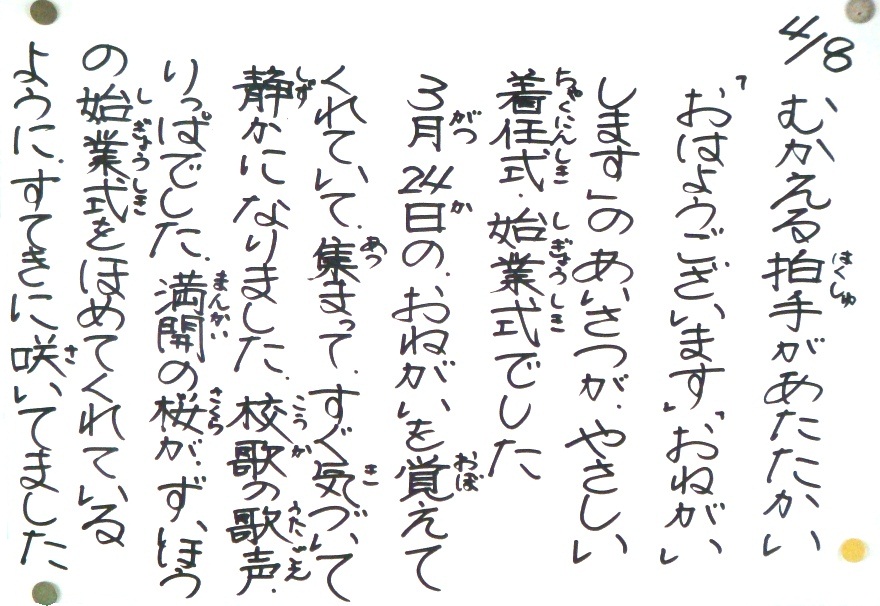 4/8
はくしゅ
むかえる拍手があたたかい
「おはようございます」「おねがい
します」のあいさつが、やさしい
ちゃくにんしき しぎょうしき
着任式、始業式でした
がつ か おぼ
3月24日の、おねがいを覚えて
あつ き
くれていて、集まって、すぐ気づいて
しず こうか うたごえ
静かになりました。校歌の歌声、
まんかい さくら
りっぱでした。満開の桜が、ずいほう
しぎょうしき
の始業式をほめてくれている
さ
ように、すてきに咲いてました